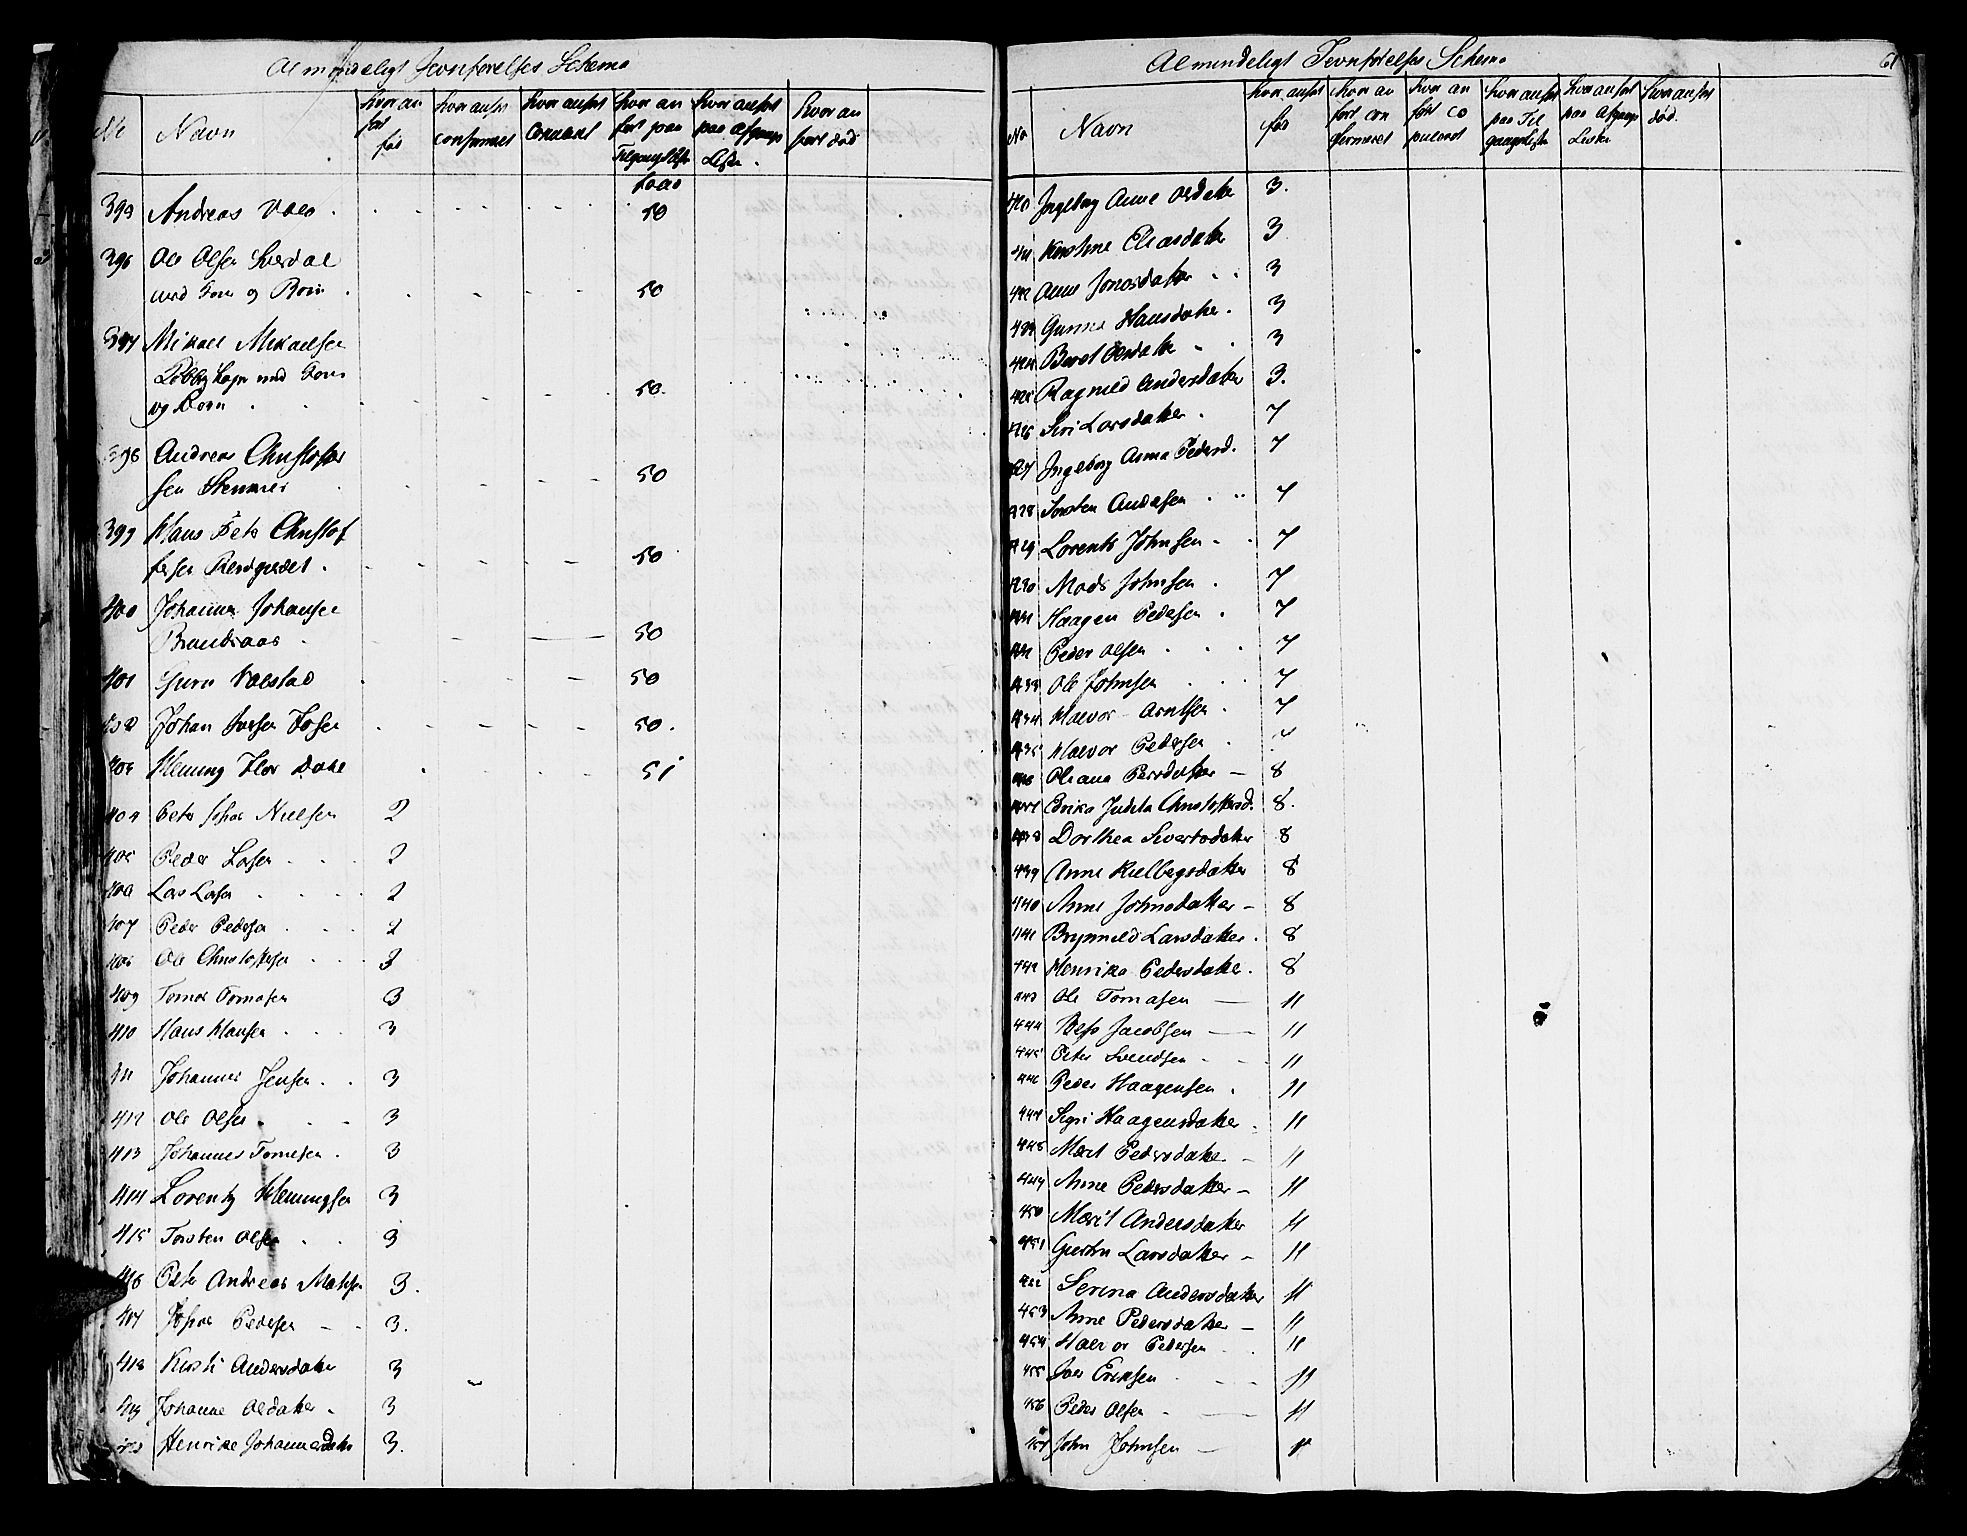 Almindeligt Jevnførelses Schema
No Navn
Hvor an ført fød
Hvor anført confirmeret
Hvor anført Copuleret
Hvor an ført paa Tilgangslisten
Hvor anført paa Afgangs Listen.
Hvor an ført død
395 Andreas Vold . 50
396 Ole Olsen
med Kone og Børn . 50
397 Mikael Mikaelsen
med Kone
og Børn . 50.
398 Andreas Christoffer
sen 50
399 Klaus Peter Christof
fersen . 50
400 Johannes Johansen
Brandsaas . 50
401 Guru Volstad 50
402 Johan Iversen 50.
403 Hemming Dahl 51
404 Peter Johan Nielsen 2
405 Peder Larsen . . . 2
406 Lars Larsen . . . 2
407 Peder Pedersen . . . 2
408 Ole Christoffersen . . . 3
409 Tomas Tomasen 3
410 Hans Klausen . . . 3
411 Johannes Jensen . . 3
412 Ole Olsen . . - 3
413 Johannes Tomesen . 3
414 Lorentz Hemmingsen 3
415 Torsten Olsen . . 3
416 Peter Andreas Matsen 3.
417 Johan Pedersen - - 3.
418 Kirsti Andersdatter 3
419 Johanne Olsdatter . 3
420 Henrikke Johannesdatter 3.
Almindeligt Jevnførelses Schema 61
No Navn
Hvor anført fød
Hvor an ført con firmeret
Hvor an ført co puleret
Hvor anført paa Til gangslisten
Hvor anført paa Afgangs Listen
Hvor anført død.
Ingeborg Anne Olsdatter 3.
Kirstine Eliasdatter 3
422 Anne Jonasdatter . . 3
423 Hansdatter . 3
424 Beret Olsdatter . . 3
425 Ragnild Andersdatter 3.
426 Siri Larsdatter . 7
427 Ingeborg Anna Pedersd. 7
428 Torsten Andersen . .. 7
429 Lorents Johnsen . . 7
430 Mads Johnsen . 7
431 Haagen Pedersen . 7
432 Peder Olsen . . . 7
433 Ole Johnsen . . . 7
434 Halvor Arntsen . 7
435 Halvor Pedersen . 7
436 Oleana Pedersdatter - 8
437 Erika Judita Christoffersd. 8.
438 Dorthea Sivertsdatter 8
439 Anne Kielbergsdatter 8
440 Anne Johnsdatter - 8
441 Brynnild Larsdatter . 8
442 Henrika Pedersdatter . 8
443 Ole Tomasen - 11
444 Jacobsen - 11
445 Peter Svendsen - - 11
446 Peder Haagensen . 11
447 Sigri Haagensdatter . 11
448 Marit Pedersdatter - 11
449 Anne Pedersdatter - 11
450 Marit Andersdatter 11
451 Guru Larsdatter - 11
452 Serina Andersdatter 11
453 Anne Pedersdatter - 11
454 Halvor Pedersen . . 11
455 Iver Eriksen . . . 11
456 Peder Olsen - 11
457 John Johnsen - 11